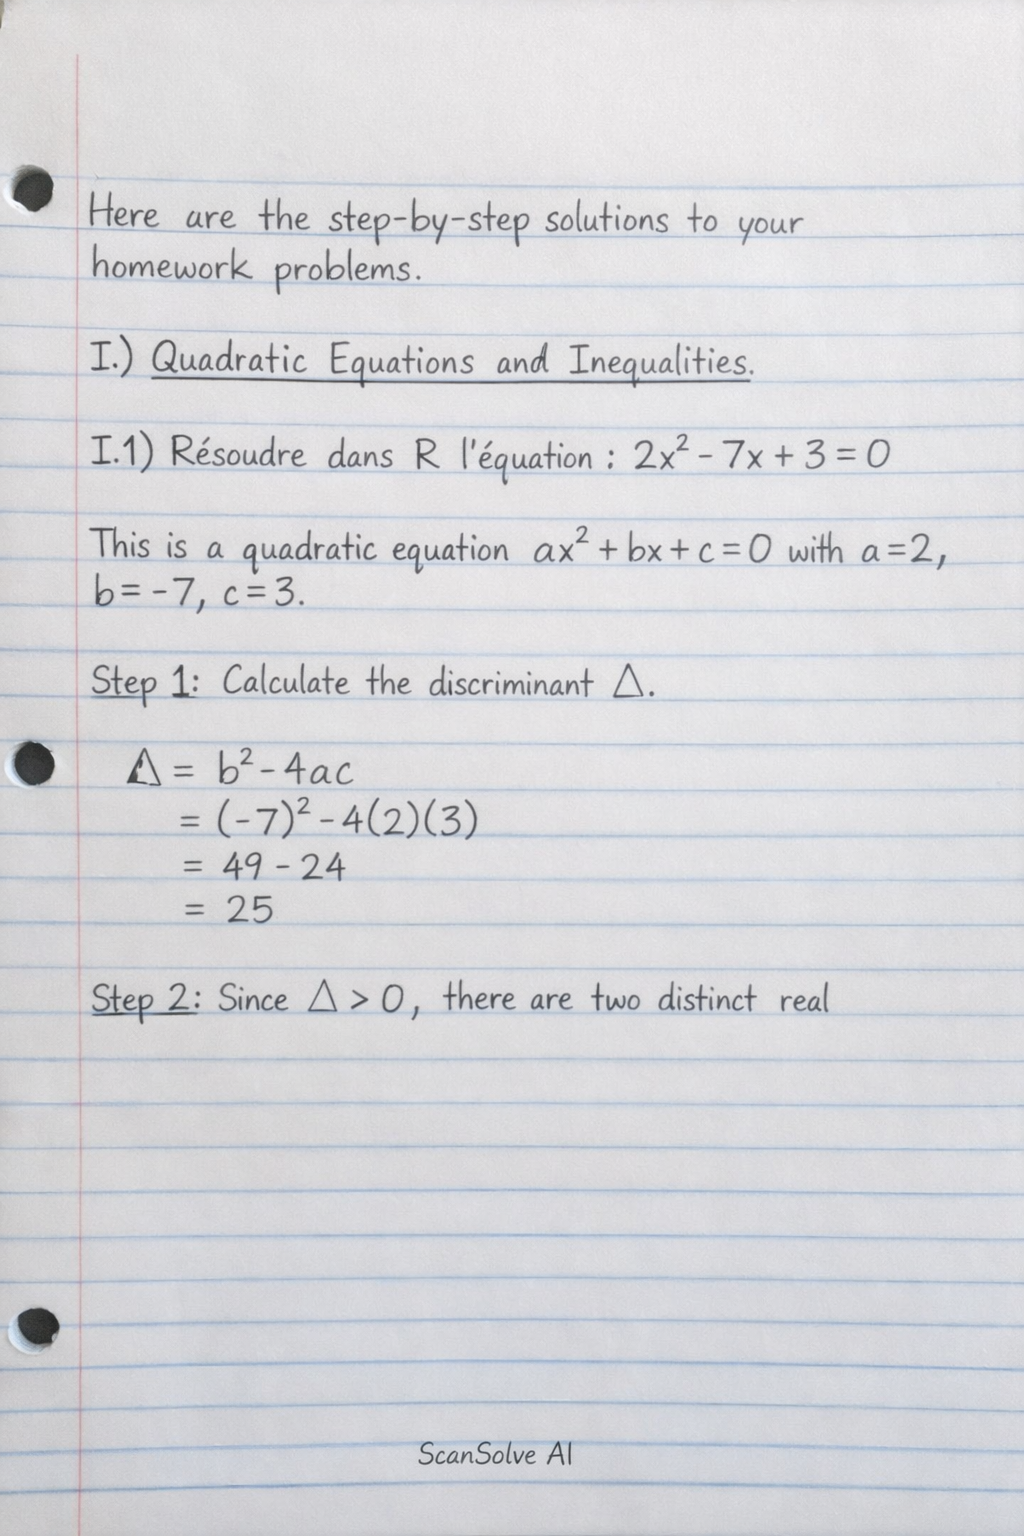 Here are the step-by-step solutions to your
homework problems.
I.) Quadratic Equations and Inequalities.
I.1) Résoudre dans R l'équation : 2x² - 7x + 3 = 0
This is a quadratic equation ax² + bx + c = 0 with a = 2,
b = -7, c = 3.
Step 1: Calculate the discriminant Δ.
Δ = b² - 4ac
= (-7)² - 4(2)(3)
= 49 - 24
= 25
Step 2: Since Δ > 0, there are two distinct real
ScanSolve AI